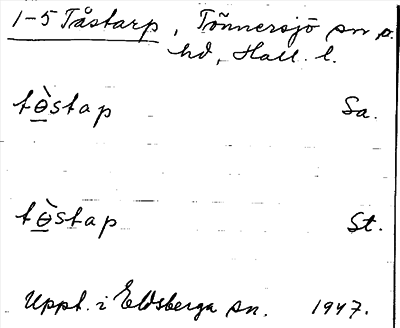 1-5 Tåstarp, Tönnersjö sn o.
hd, Hall. l.
tɵ̲̀stap Sa.
tɵ̲̀stap St.
Uppt. i Eldsberga sn. 1947.